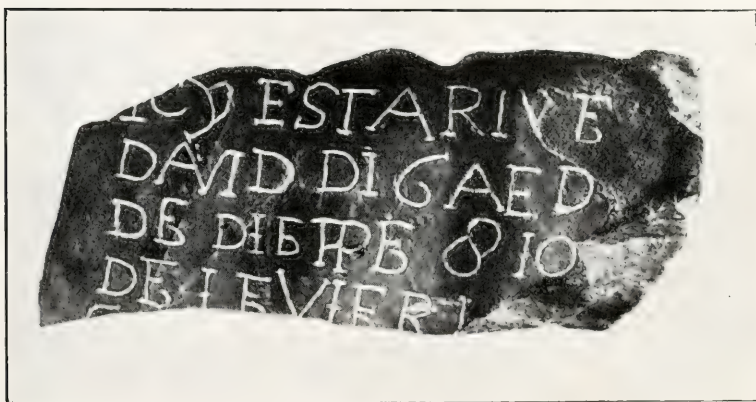 ICY EST ARIVE
DAVID DIGAED
DE DIEPPE 8 IO
DE IEVIER